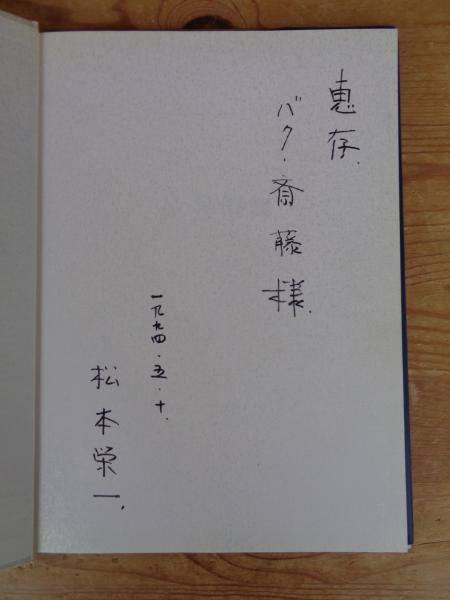 恵存.
バク・斎藤様.
一九九四・五・十.
松本栄一.